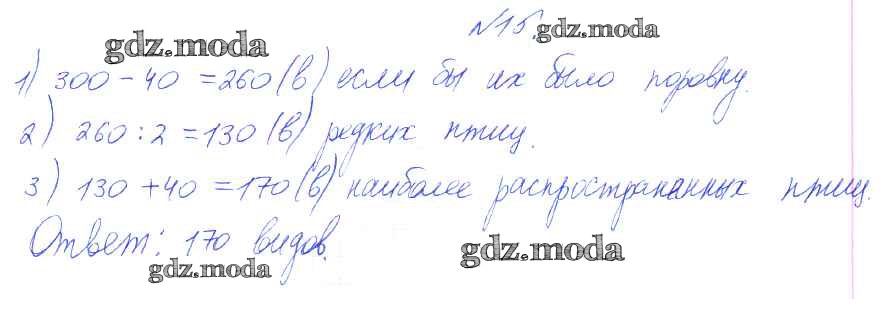 №15.
gdz.moda gdz.moda
1) 300 - 40 = 260 (в) если бы их было поровну.
2) 260 : 2 = 130 (в) редких птиц.
3) 130 + 40 = 170 (в) наиболее распространанных птиц.
Ответ: 170 видов.
gdz.moda gdz.moda